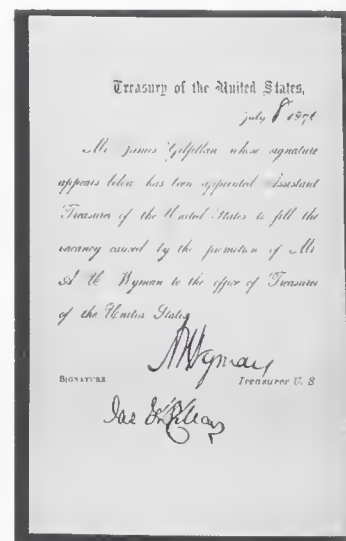 Treasury of the United States,
July 8 187
Mr James Gilfillan whose signature
appears below has been appointed Assistant
Treasurer of the United States to fill the
vacancy caused by the promotion of Mr
A U Wyman to the office of Treasurer
of the United States
A U Wyman
SIGNATURE Treasurer U. S
Jas Gilfillan